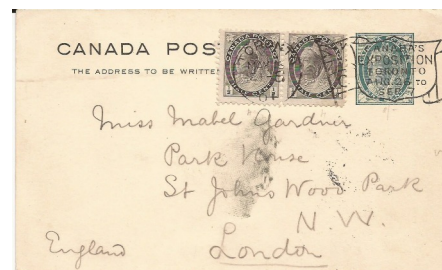 CANADA POS
THE ADDRESS TO BE WRITTEN
CANADA POSTAGE
CANADA POSTAGE
CANADA'S
EXPOSITION
TORONTO
AUG. 26 TO
SEP 7
Miss Mabel Gardner
Park House
St Johns Wood Park
N. W.
England
London